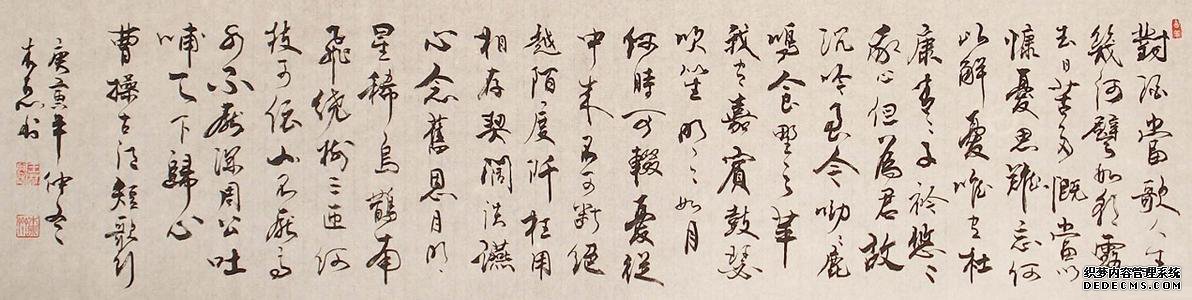 對酒當歌人生
幾何譬如朝露
去日苦多慨當以
慷憂思難忘何
以解憂唯有杜
康青々子衿悠々
我心但為君故
沉吟至今呦々鹿
鳴食野之苹
我有嘉賓鼓瑟
吹笙明々如月
何時可輟憂從
中來不可斷絕
越陌度阡枉用
相存契闊談讌
心念舊恩月明
星稀烏鵲南
飛繞樹三匝何
枝可依山不厭高
水不厭深周公吐
哺天下歸心
曹操古詩短歌行
庚寅年仲冬
织梦内容管理系统
DEDECMS.COM